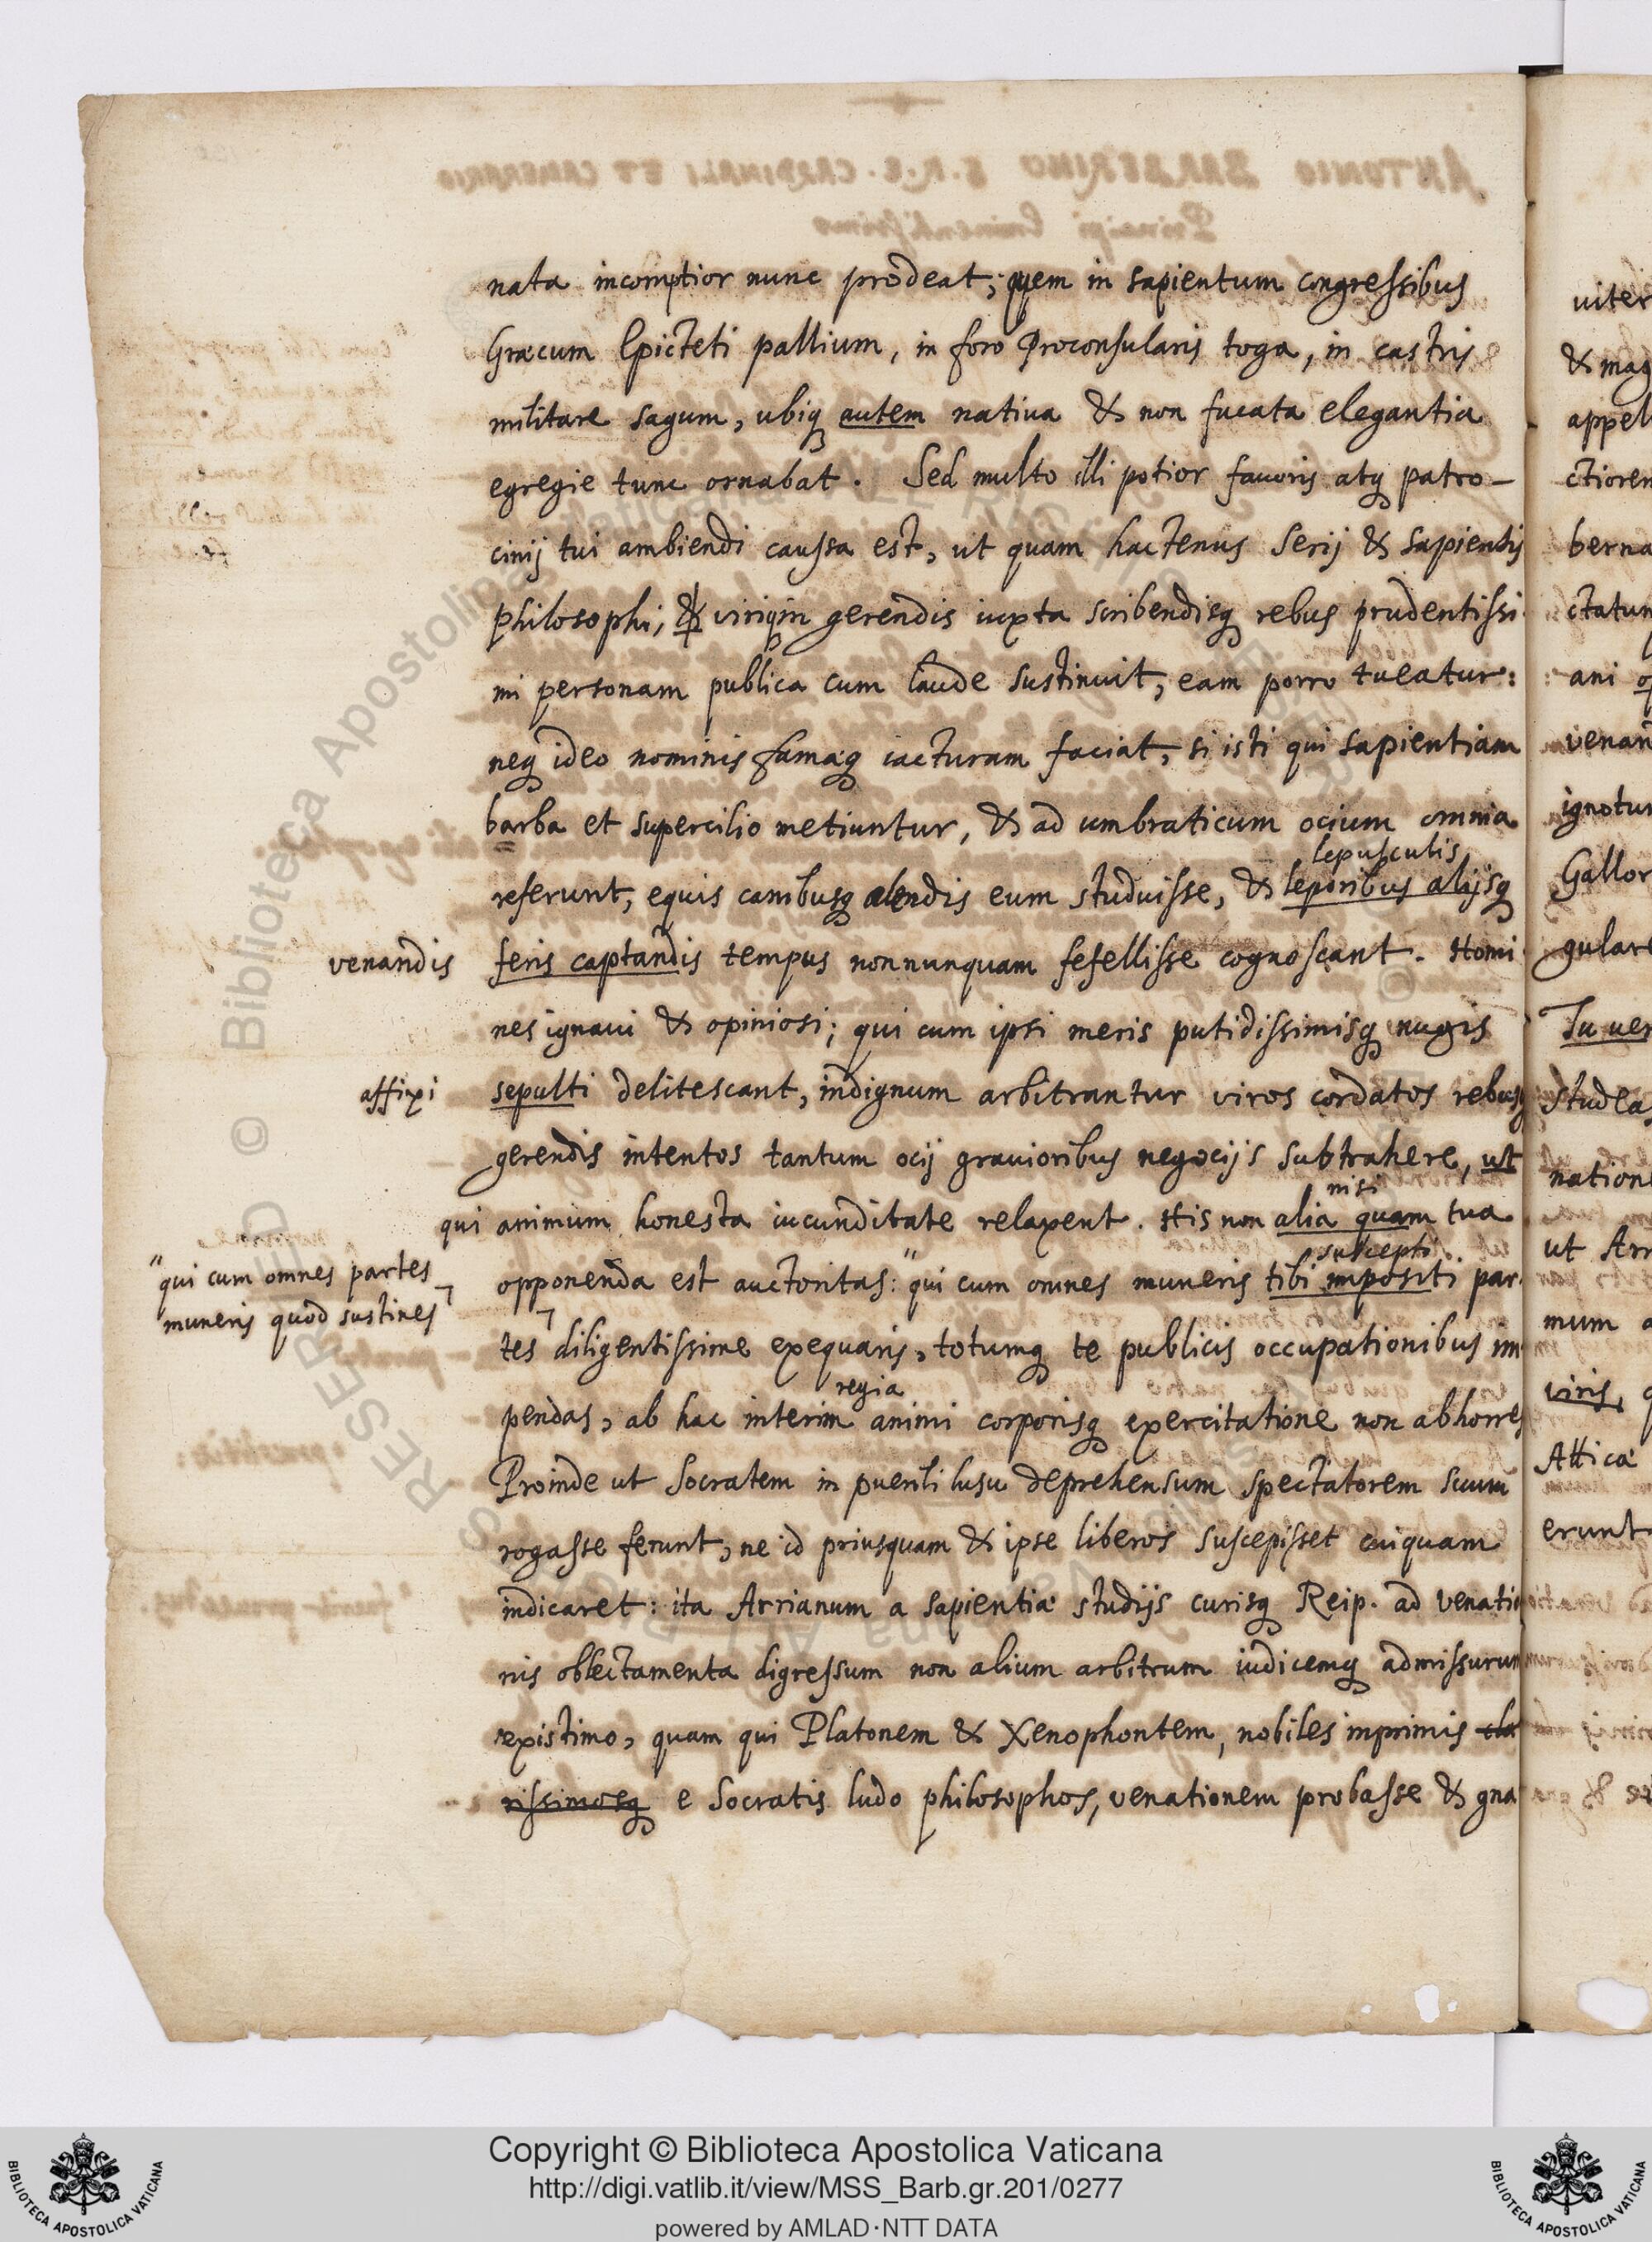 nata incomptior nunc prodeat; quem in sapientum congressibus
Græcum Epicteti pallium, in foro Proconsularis toga, in castris
militare sagum, ubiq autem nativa & non fucata elegantia
egregie tunc ornabat. Sed multo illi potior favoris atq patro-
cinij tui ambiendi caussa est, ut quam hactenus Serij & sapientis
philosophi, & viriq in gerendis iuxta scribendisq rebus prudentissi
mi personam publica cum laude sustinuit, eam porro tueatur:
neq ideo nominis famæq iacturam faciat, si isti qui sapientiam
barba et supercilio metiuntur, & ad umbraticum ocium omnia
lepusculis
referunt, equis canibusq alendis eum studuisse, & leporibus alijsq
venandis feris captandis tempus nonnunquam fefellisse cognoscant. Homi
nes ignavi & opiniosi; qui cum ipsi meris putidissimisq nugis
affixi sepulti delitescant, indignum arbitrantur viros cordatos rebus
gerendis intentos tantum ocij gravioribus negocijs subtrahere, ut
nisi
qui animum honesta iucunditate relaxent. His non alia quam tua
suscepti
"qui cum omnes partes
muneris quod sustines
opponenda est auctoritas: "qui cum omnes muneris tibi impositi par
tes diligentissime exequaris, totumq te publicis occupationibus im
regia
pendas, ab hac interim animi corporisq exercitatione non abhorres
Proinde ut Socratem in puerili lusu deprehensum spectatorem suum
rogasse ferunt, ne id priusquam & ipse liberos suscepisset cuiquam
indicaret: ita Arrianum a sapientiæ studijs curisq Reip. ad venatio
nis oblectamenta digressum non alium arbitrum iudicemq admissurum
existimo, quam qui Platonem & Xenophontem, nobiles inprimis cla
rissimosq e Socratis ludo philosophos, venationem probasse & gna
viter
& mag
appel
ctiorem
berna
ctatum
ani
venan
ignotum
Gallor
gulare
Tu ver
studeas
nation
ut Arr
mum a
viris, q
Attica
erunt
© Biblioteca Apostolica Vaticana
Copyright © Biblioteca Apostolica Vaticana
http://digi.vatlib.it/view/MSS_Barb.gr.201/0277
powered by AMLAD·NTT DATA
BIBLIOTECA APOSTOLICA VATICANA
BIBLIOTECA APOSTOLICA VATICANA